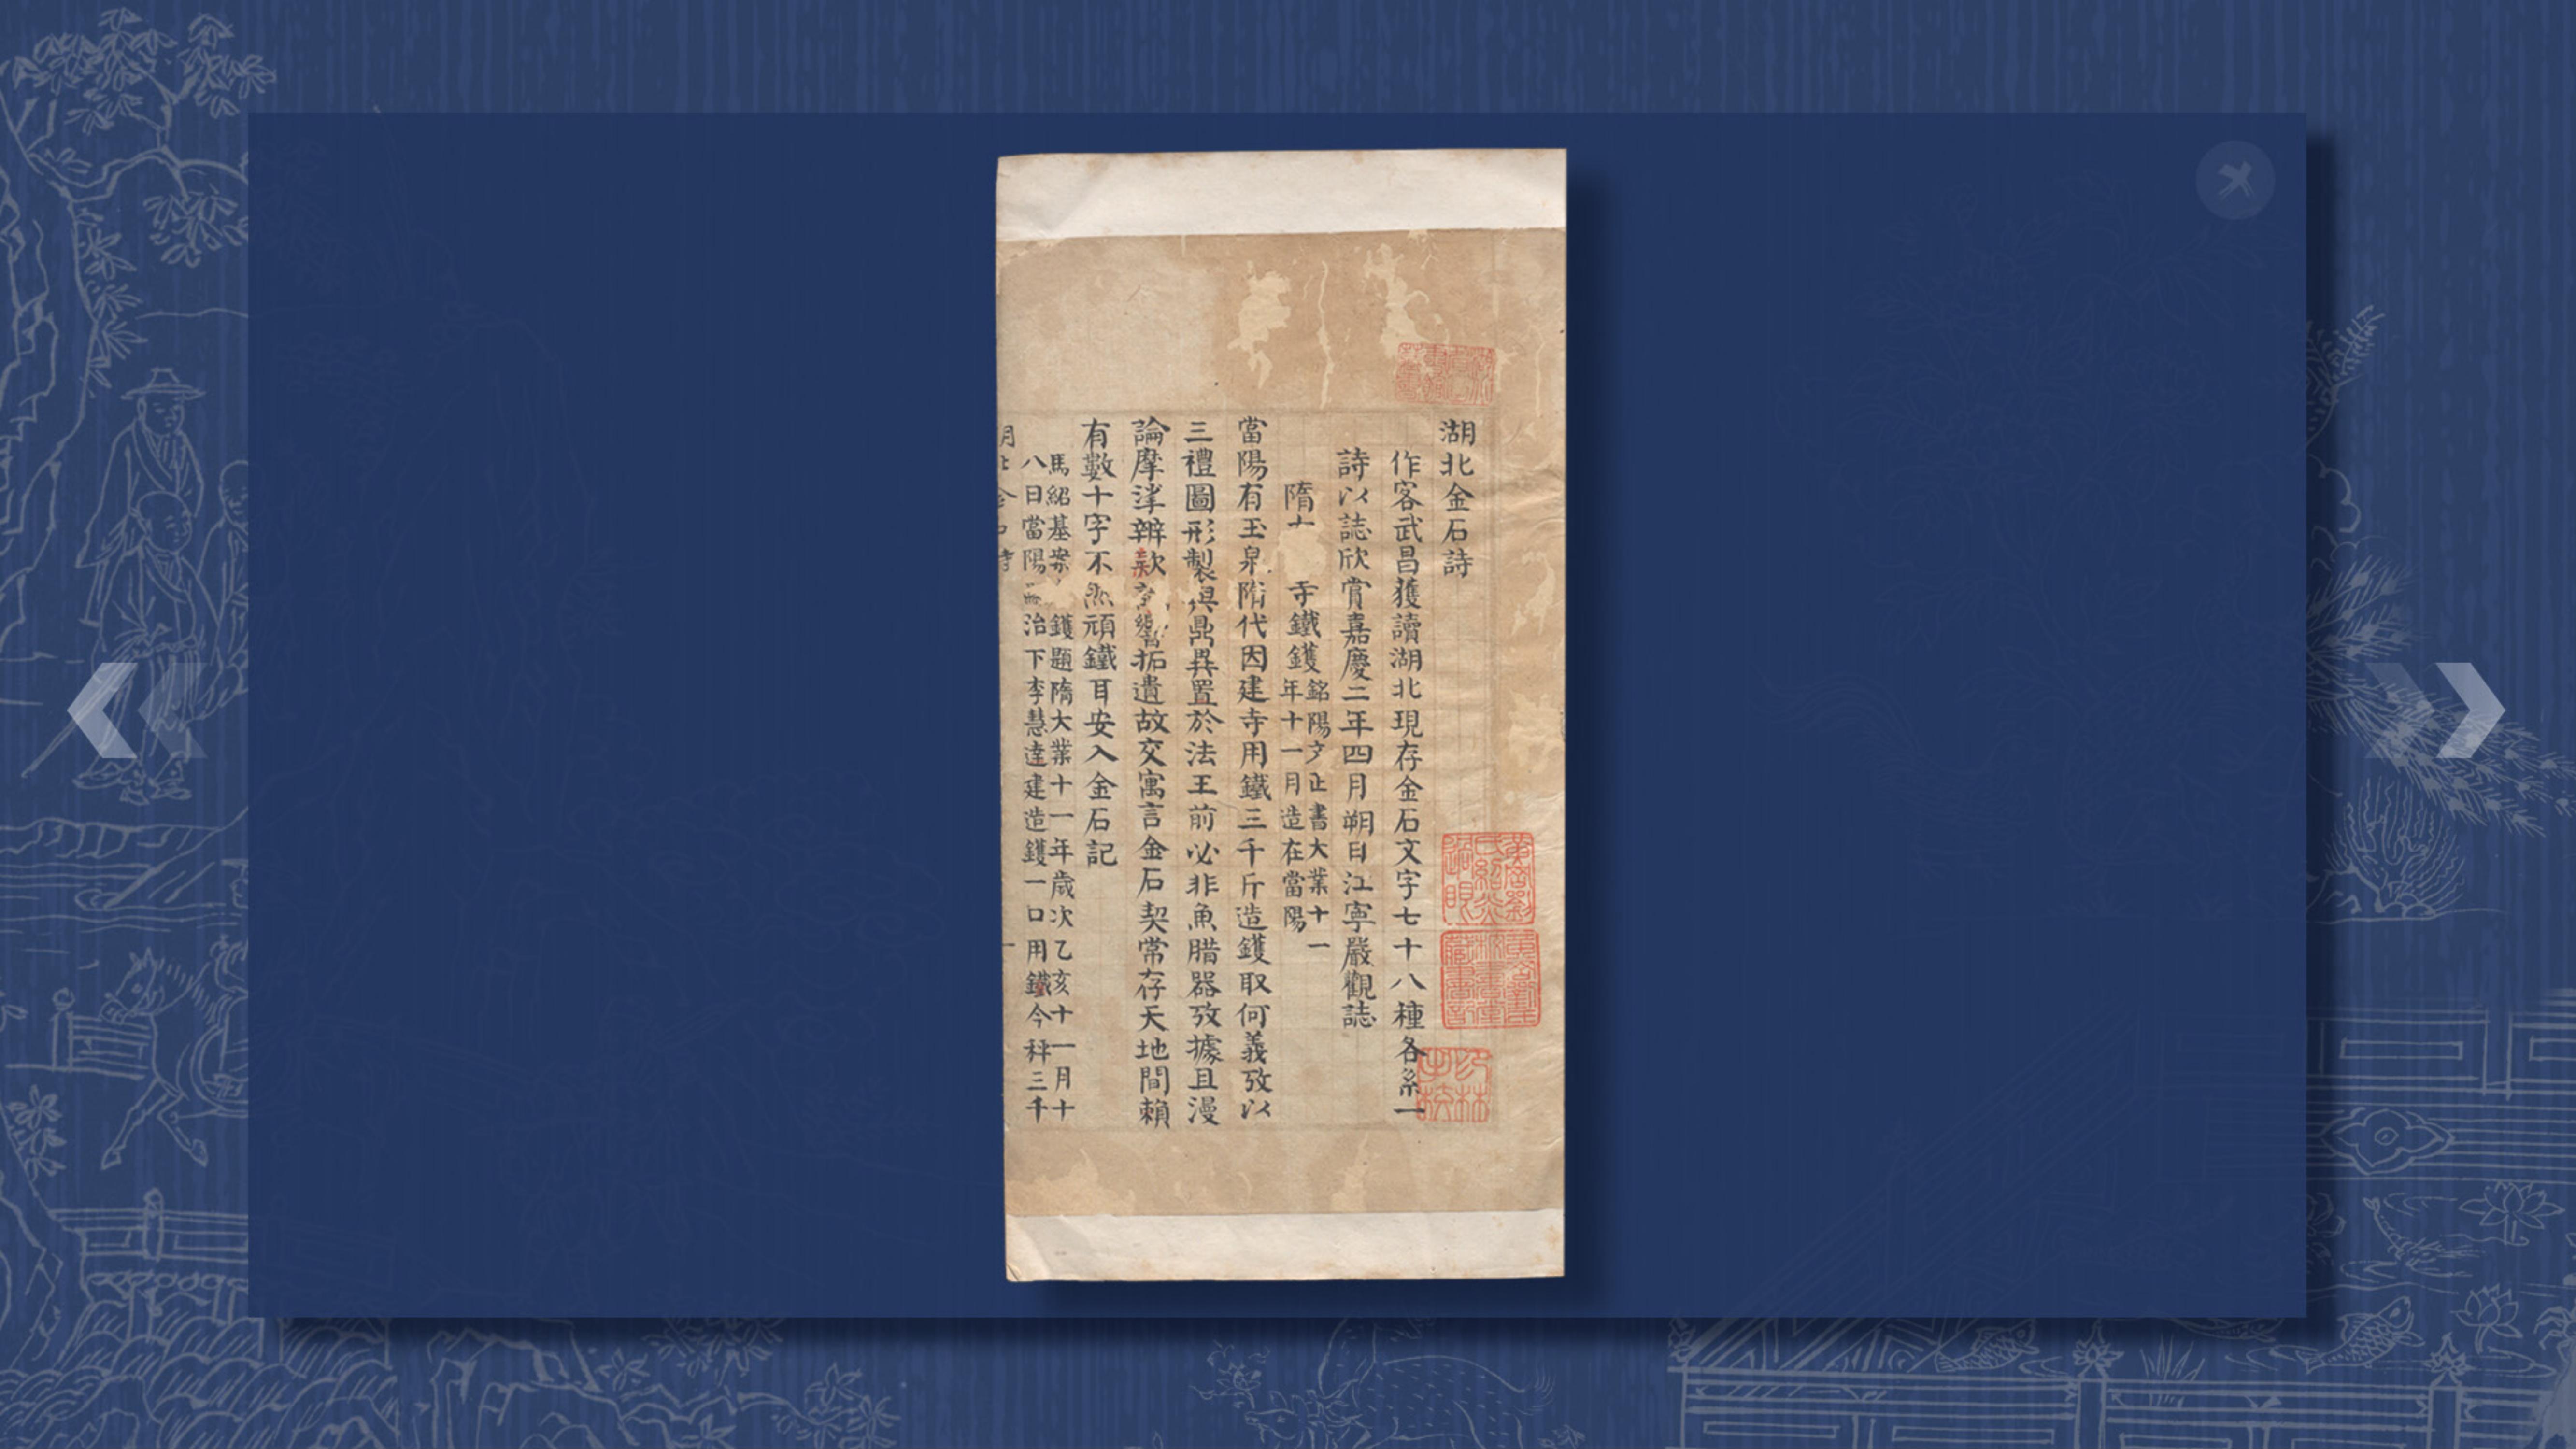 湖北金石詩
作客武昌獲讀湖北現存金石文字七十八種各系一
詩以誌欣賞嘉慶二年四月朔日江寧嚴觀誌
隋大 寺鐵鑊銘陽文正書大業十一
年十一月造在當陽
當陽有玉泉隋代因建寺用鐵三千斤造鑊取何義攷以
三禮圖形製與鼎異置於法王前必非魚腊器攷據且漫
論摩挲辨款 拓遺故交寓言金石契常存天地間賴
有數十字不然頑鐵耳安入金石記
馬紹基案 鑊題隋大業十一年歲次乙亥十一月十
八日當陽 治下李慧達建造鑊一口用鐵今秤三千